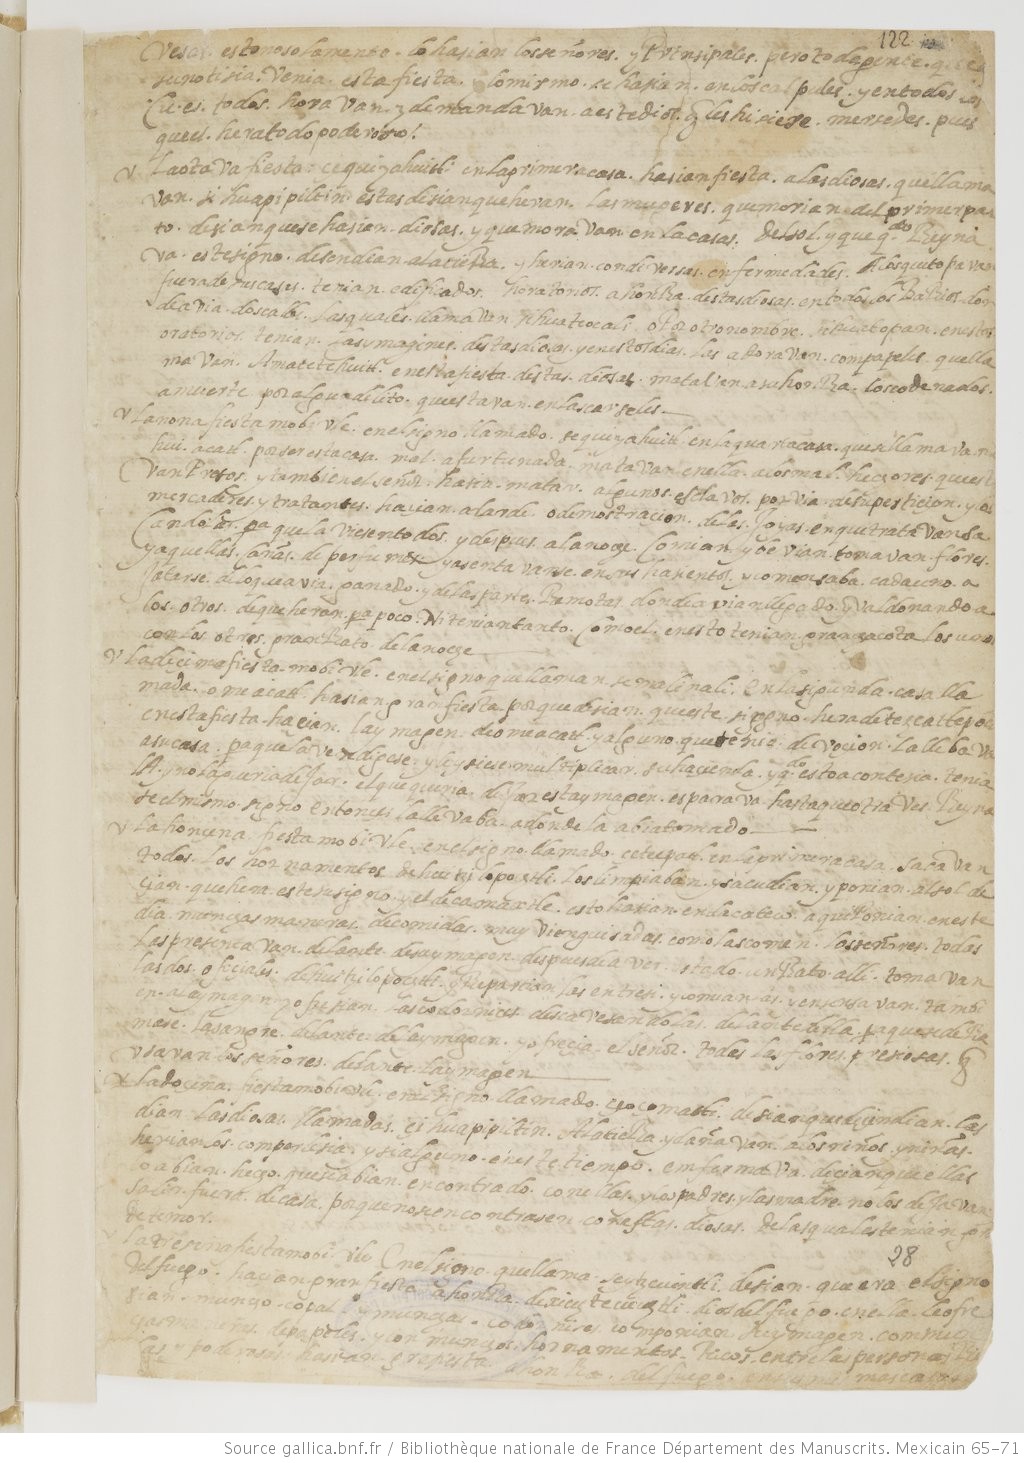 122
veses. estonosolamente. lo hasian los señores. y Prinsipales. pero toda gente. que
su notisia. venia. esta fiesta. lo mismo. se hasian. en los calpules. y en todos los
es. todos. hora van. y demanda van. a este dios. q les hisiese. mersedes. pues
que el. hera todo poderoso.
v La ota va fiesta. ce quiyahuitl. en la primera casa. hasian fiesta. a las diosas. que llama
van. sihuapipiltin. estas desian que heran. las mugeres. que morian del primer par
to. desian que se hasian. diosas. y que mora van en la casas. del sol. y que qdo Reyna
va. este signo. desendian a la tierra. y herian. con diversas. enfermedades. A los que topa van
fuera de sus casas. tenian edificados. horatorios. a honRa. destas diosas. en todos los Barrios. don
de avia. dos calles. las quales. llama van sihuateocali. o por otro nombre. sihuatopan. en estos
oratorios. tenian. las ymagines. destas diosas. y en estos dias. las adora van. con papeles. que lla
ma van. Amatetehuitl. en esta fiesta. destas. diosas. mata van a su honRa. los condenados.
a muerte. por algun delito. que esta van. en las carseles.
v La nona fiesta mobible. en el signo llamado. se quiyahuitl. en la quarta casa. que se llama va na
hui. acatl. por ser esta casa. mal afortunada. mata van en ella. a los mal. hechores. que esta
van Presos. y tambien el señor. hasia. matar. algunos esclavos. por via de supersticion. y los
mercaderes. y tratantes. hasian alarde. o demostracion. de las Joyas. en que trata van. sa
candolas. pa que la viesen todos. y despues. a la noche. Comian. y be vian. toma van flores.
y aquellas. cañas. de perfumes y asenta vanse. en sus hasentos. y comensaba. cada uno. a
Jatarse. de lo que avia. ganado. y de las partes. Remotas. donde a vian llegado. y valdonando a
los. otros. de que heran. pa poco. Ni tenian tanto. Como el. en esto tenian. gran chacota. los unos
con los otros. gran Rato. de la noche
v La decima fiesta. mobible. en el signo que llaman se malinali. en la segunda. casa. lla
mada. omeacatl. hasian gran fiesta. porque desian. que este. signo. hera de tescatlepoca
en esta fiesta. hasian. la ymagen. de omeacatl. y alguno. que tenia. de vocion. la lleba va
a su casa. pa que la vendigese. y le hisiese. multiplicar. su hacienda. y qdo esto acontesia. tenia
la. y no la queria dejar. el que queria. dejar esta ymagen. espera va. hasta que otra ves. Reyna
se el mismo. signo. Entonces. la lle vaba. a donde la abia tomado
v La honsena. fiesta mobible. en el signo llamado. cetecpatl. en la primera casa. saca van
todos. Los hornamentos. de huitzilopochtli. Los limpiaban. y sacudian. y ponian. al sol. de
çian. que hera. este su signo. y el de camaxtle. esto hasian. en tlacateco. aqui Ponian. en este
dia. munchas maneras. de comidas. muy vien guisadas. como las comen. los señores. todas
las presenta van. delante. de su ymagen. despues de a ver. estado. un Rato. alli. toma van
las. los. ofisiales. de huitzilopochtli. y Repartian las entre si. y comianlas. y ensensa van. tambi
en. a la ymagen. y ofresian. las codornises. descavesandolas. delante della. pa que se deRa
mase. la sangre. delante. de la ymagen. y ofrecia. el señor. todas las flores. presiosas. q
usavan los señores. delante. la ymagen
v La dosena. fiesta mobible. en el signo. llamado. ce oçomatli. desian que desendian. las
dian. las diosas. llamadas. sihuapipiltin. A la tierra. y daña van. a los niños. y niñas.
herianlos. con perlesia. y si alguno. en este tiempo. enferma va. decian que ellas
lo abian. hecho. que se abian. encontrado. con ellas. y los padres. y las madres. no los deja van
salir. fuera. de casa. porque no se encontrasen. con estas. diosas. de las quales tenian gran
de temor.
28
La tresena fiesta mobible. En el signo. que llama. se ytzcuintli. desian. que era. el signo
del fuego. hasian gran fiesta. a honRa. de xiuhtecuhtli. dios del fuego. en ella. le ofre
sian. muncho. copal. y munchas. codornises. componian. su ymagen. con mu
chas maneras. de papeles. y con munchos. hornamentos. Ricos. entre las personas Ri
cas. y poderosas. hasian. gran fiesta. a honRa. del fuego.